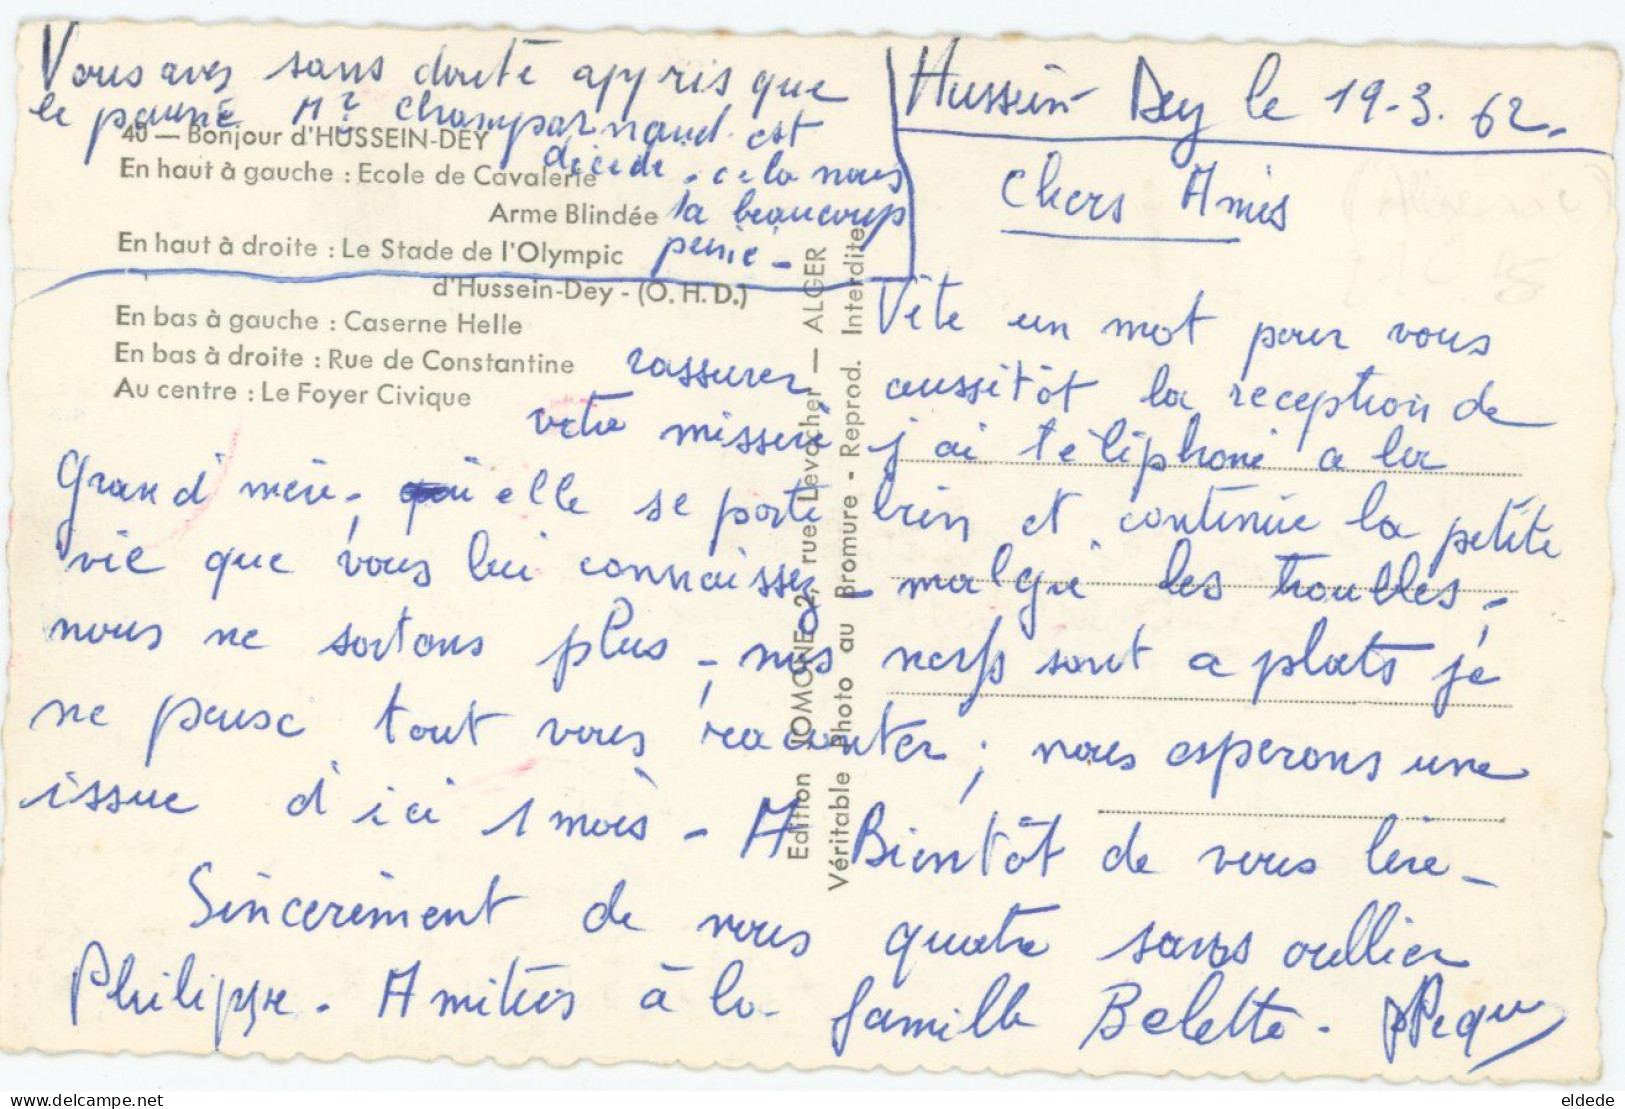 Vous avez sans doute appris que
le pauvre Mr Champarnaud est
décédé. cela nous
a beaucoup
peiné -
40 — Bonjour d'HUSSEIN-DEY
En haut à gauche : Ecole de Cavalerie
Arme Blindée
En haut à droite : Le Stade de l'Olympic
d'Hussein-Dey - (O. H. D.)
En bas à gauche : Caserne Helle
En bas à droite : Rue de Constantine
Au centre : Le Foyer Civique
Edition JOMONE 2, rue Levacher — ALGER
Véritable Photo au Bromure - Reprod. Interdite
Hussein Dey le 19-3.62.
Chers Amis
Vite un mot pour vous
rassurer, aussitôt la reception de
votre missive j'ai téléphoné a la
Grand mère, qu'elle se porte bien et continue la petite
vie que vous lui connaissez - malgré les troubles,
nous ne sortons plus - nos nerfs sont a plats je
ne peuse tout vous raconter ; nous esperons une
issue d'ici 1 mois - A Bientôt de vous lire -
Sincerement de nous quatre sans oublier
Philippe. Amitiés à la famille Belette.
eldede